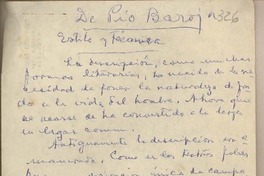 De Pío Baroja 326
Estilo y técnica
La descripción, como muchas
formas literarias, ha nacido de la ne
cesidad de poner la naturaleza de fon
do a la vida del hombre. Ahora que
se ha convertido a la larga
en lugar común.
Antiguamente la descripción era
Como en los
de campo